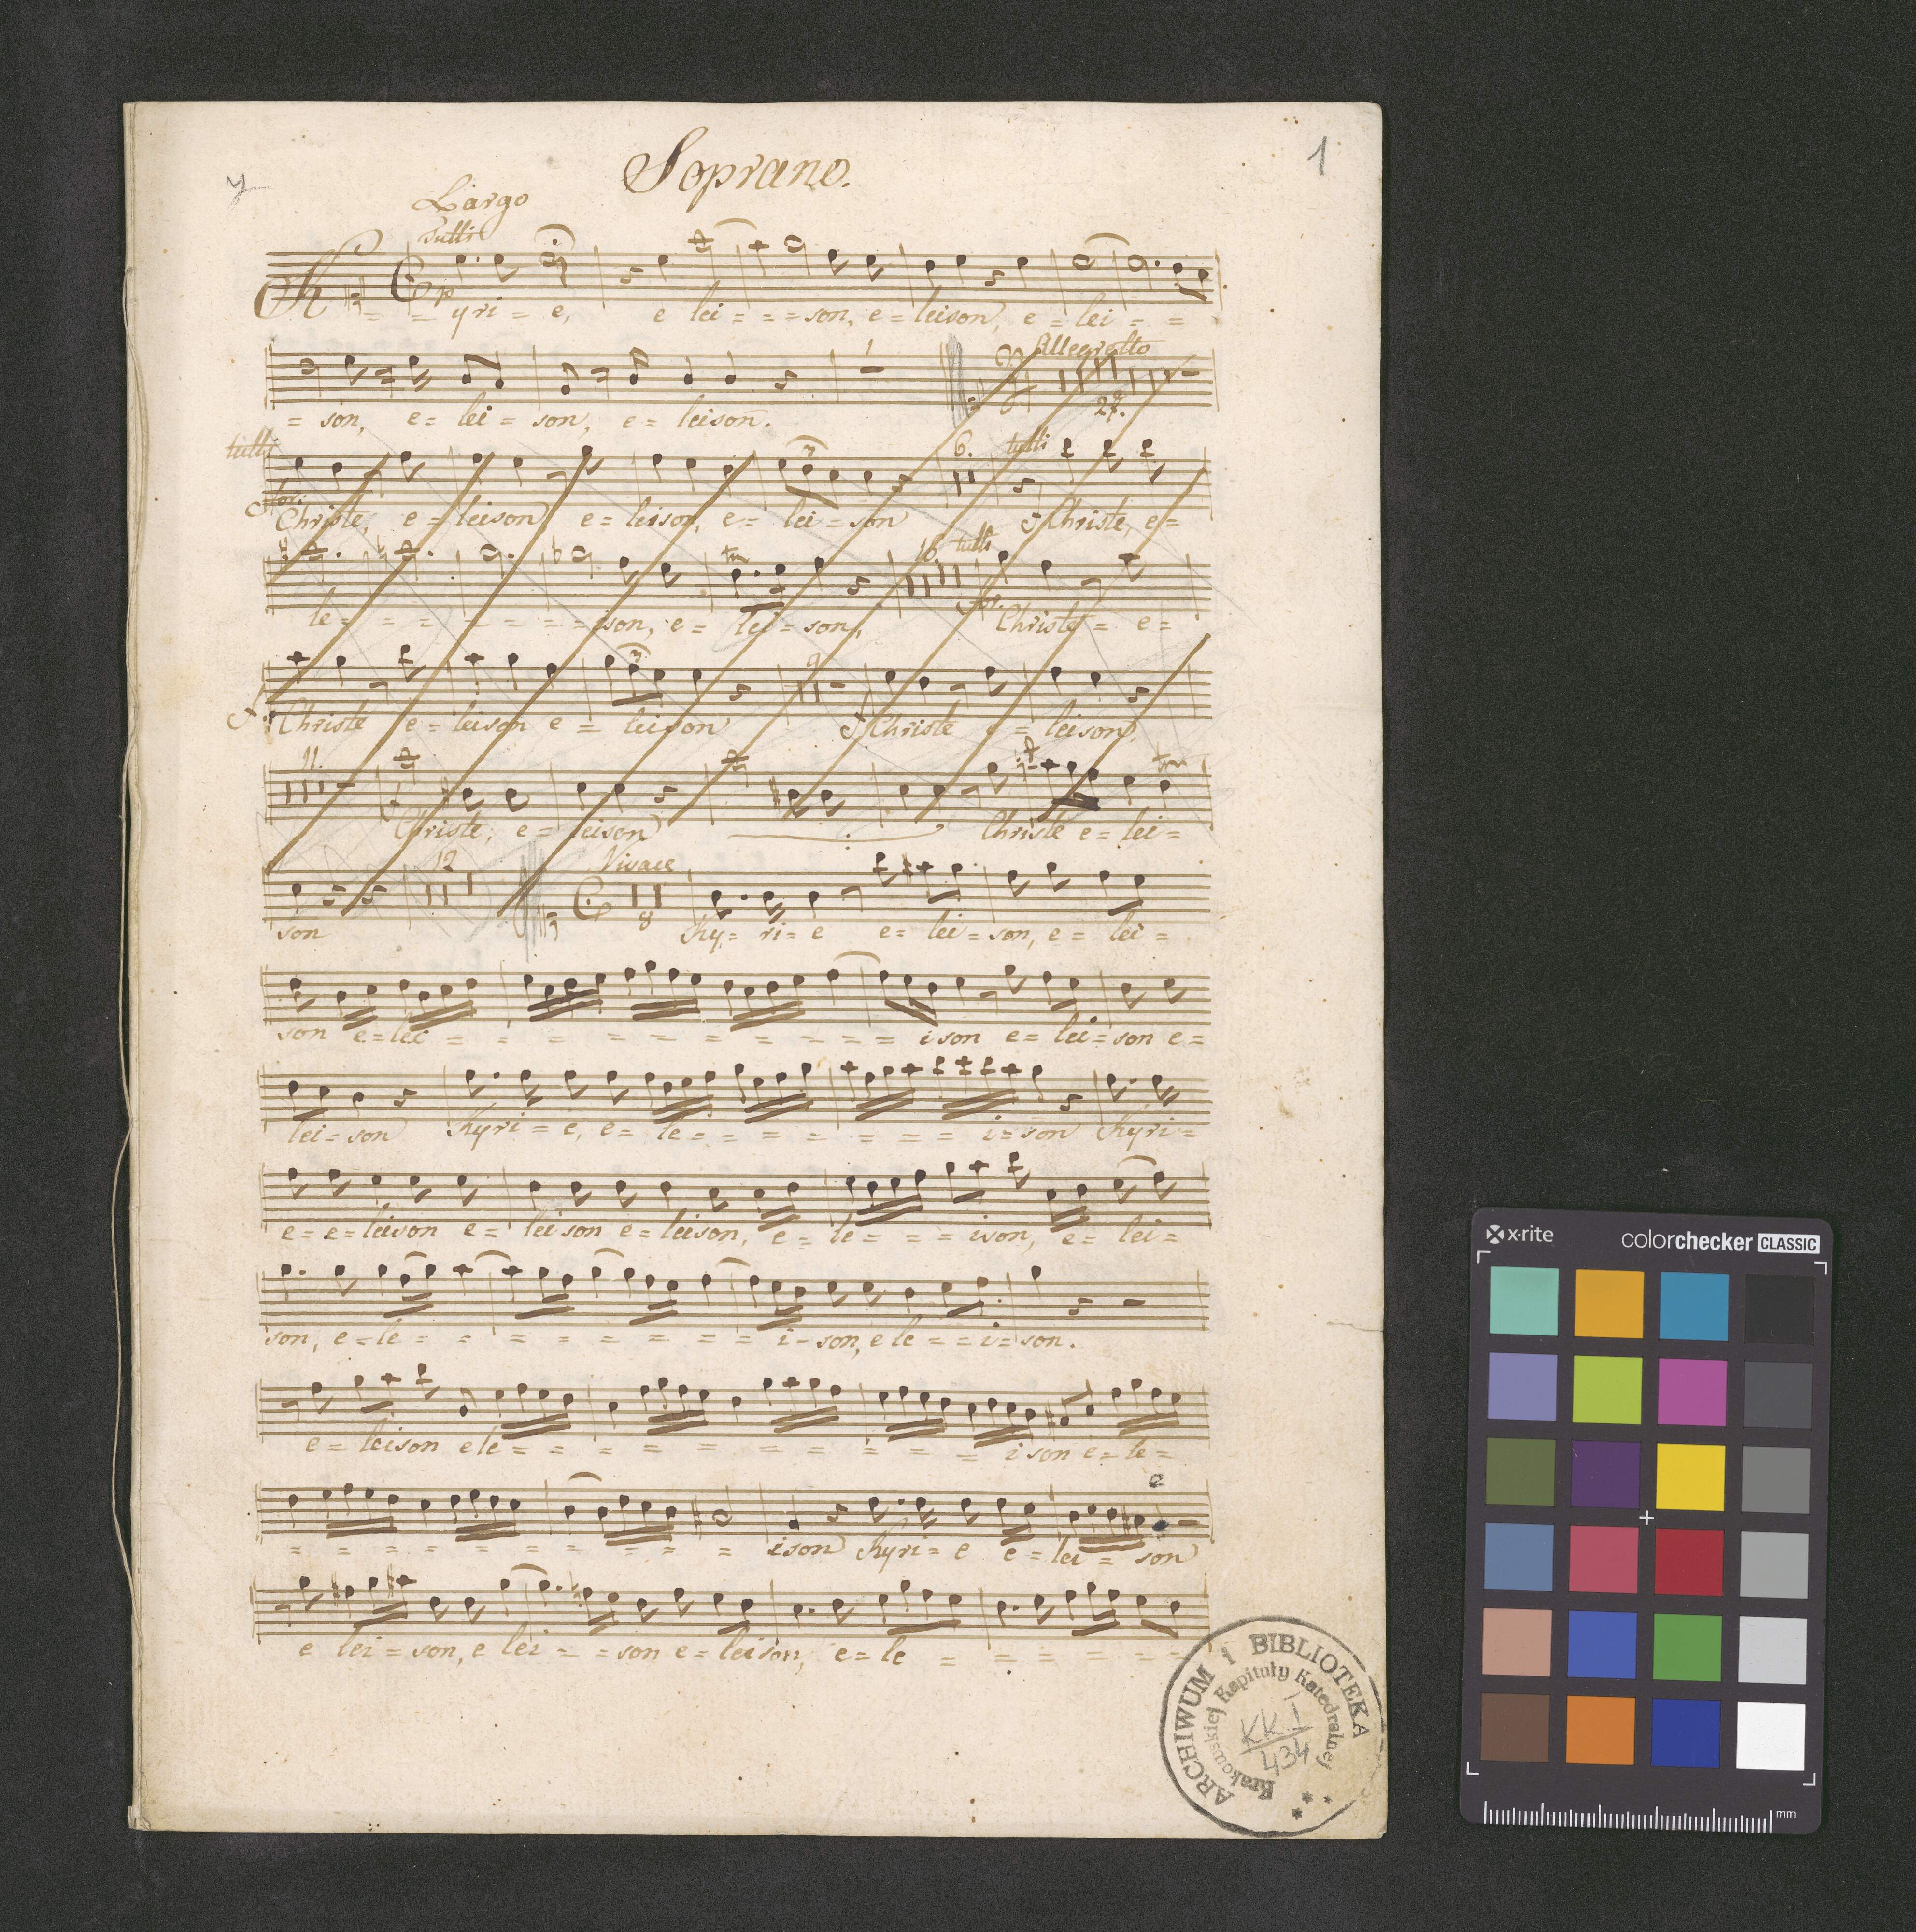 Soprano.
1
y
Largo
Tutti
p
Kyri = e, e lei = = = son, e = leison, e = lei = =
Allegretto
1
27.
= son, e = lei = son, e = leison.
tutti
3
6.
tutti
for.
Christe, e = leison e = leison, e = lei = son f Christe, e =
tr
16
tutti
le = = = = = = = ison, e = lei = son, for. Christe = e =
3
9
f
Christe e = leison e = leison f Christe e = leison,
11.
tr
f
Christe, e = leison Christe e = lei =
12
Vivace
8
son Ky = ri = e e = lei = son, e = lei =
son e = lei = = = = = = = = = = ison e = lei = son e =
lei = son Kyri = e, e = le = = = = = = = i = son Kyri =
e = e = leison e = leison e = leison, e = le = = = ison, e = lei =
son, e = le = = = = = = = = = i = son, ele = = i = son.
e = leison ele = = = = = = = = = = ison e = le =
e
= = = = = = = = = = ison Kyri = e e = lei = son
e lei = son, e lei = = son e = leison, e = le = = = = = =
ARCHIWUM i BIBLIOTEKA
Krakowskiej Kapituły Katedralnej
KK I
434
x·rite
colorchecker CLASSIC
mm